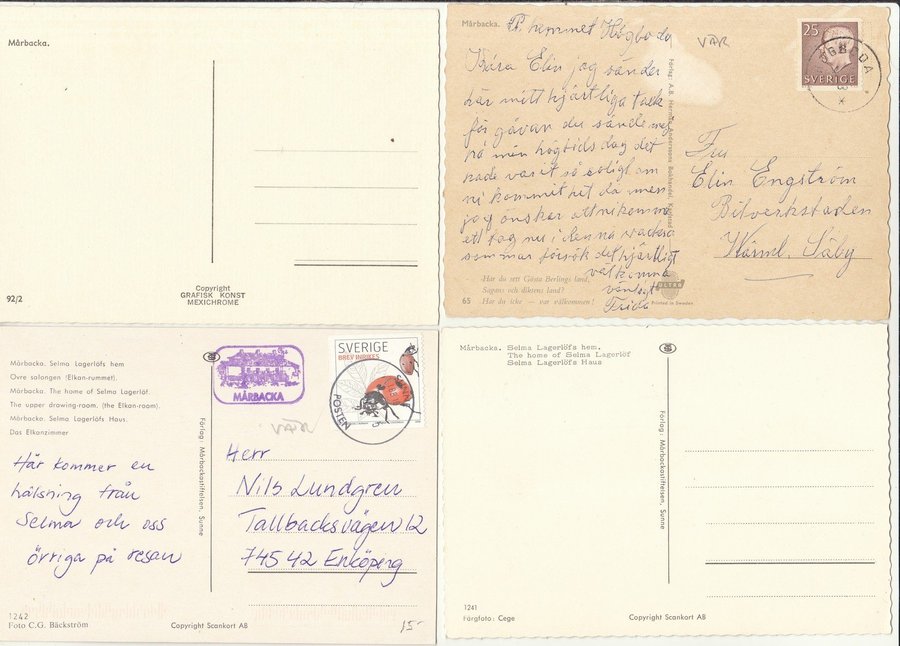 Mårbacka.
92/2
Copyright
GRAFISK KONST
MEXICHROME
Mårbacka.
P. hemmet Högboda
VÄR
Kära Elin jag sänder
här mitt hjärtliga tack
för gåvan du sände mej
på min högtidsdag det
hade varit så roligt om
ni kommit hit da men
jag önskar att ni komma
ett tag nu i denna vackra
sommar försök det hjärtligt
välkomna
vänligt
Frida
Har du sett Gösta Berlings land,
Sagans och diktens land?
65 Har du icke – var välkommen!
Förlag: A.B. Herman Anderssons Bokhandel,
ULTRA
Printed in Sweden
25
SVERIGE
HÖGBODA
Fru
Elin Engström
Bilverkstaden
Värml. Säby
Mårbacka. Selma Lagerlöfs hem
Övre salongen (Elkan-rummet).
Mårbacka. The home of Selma Lagerlöf.
The upper drawing-room. (the Elkan-room).
Mårbacka. Selma Lagerlöfs Haus.
Das Elkanzimmer
Här kommer en
hälsning från
Selma och oss
övriga på resan
1242
Foto C.G. Bäckström
Copyright Scankort AB
15-
Förlag: Mårbackastiftelsen, Sunne
MÅRBACKA
SVERIGE
BREV INRIKES
POSTEN
VÄR
Herr
Nils Lundgren
Tallbacksvägen 12
745 42 Enköping
Mårbacka. Selma Lagerlöfs hem.
The home of Selma Lagerlöf
Selma Lagerlöfs Haus
Förlag: Mårbackastiftelsen, Sunne
1241
Färgfoto: Cege
Copyright Scankort AB